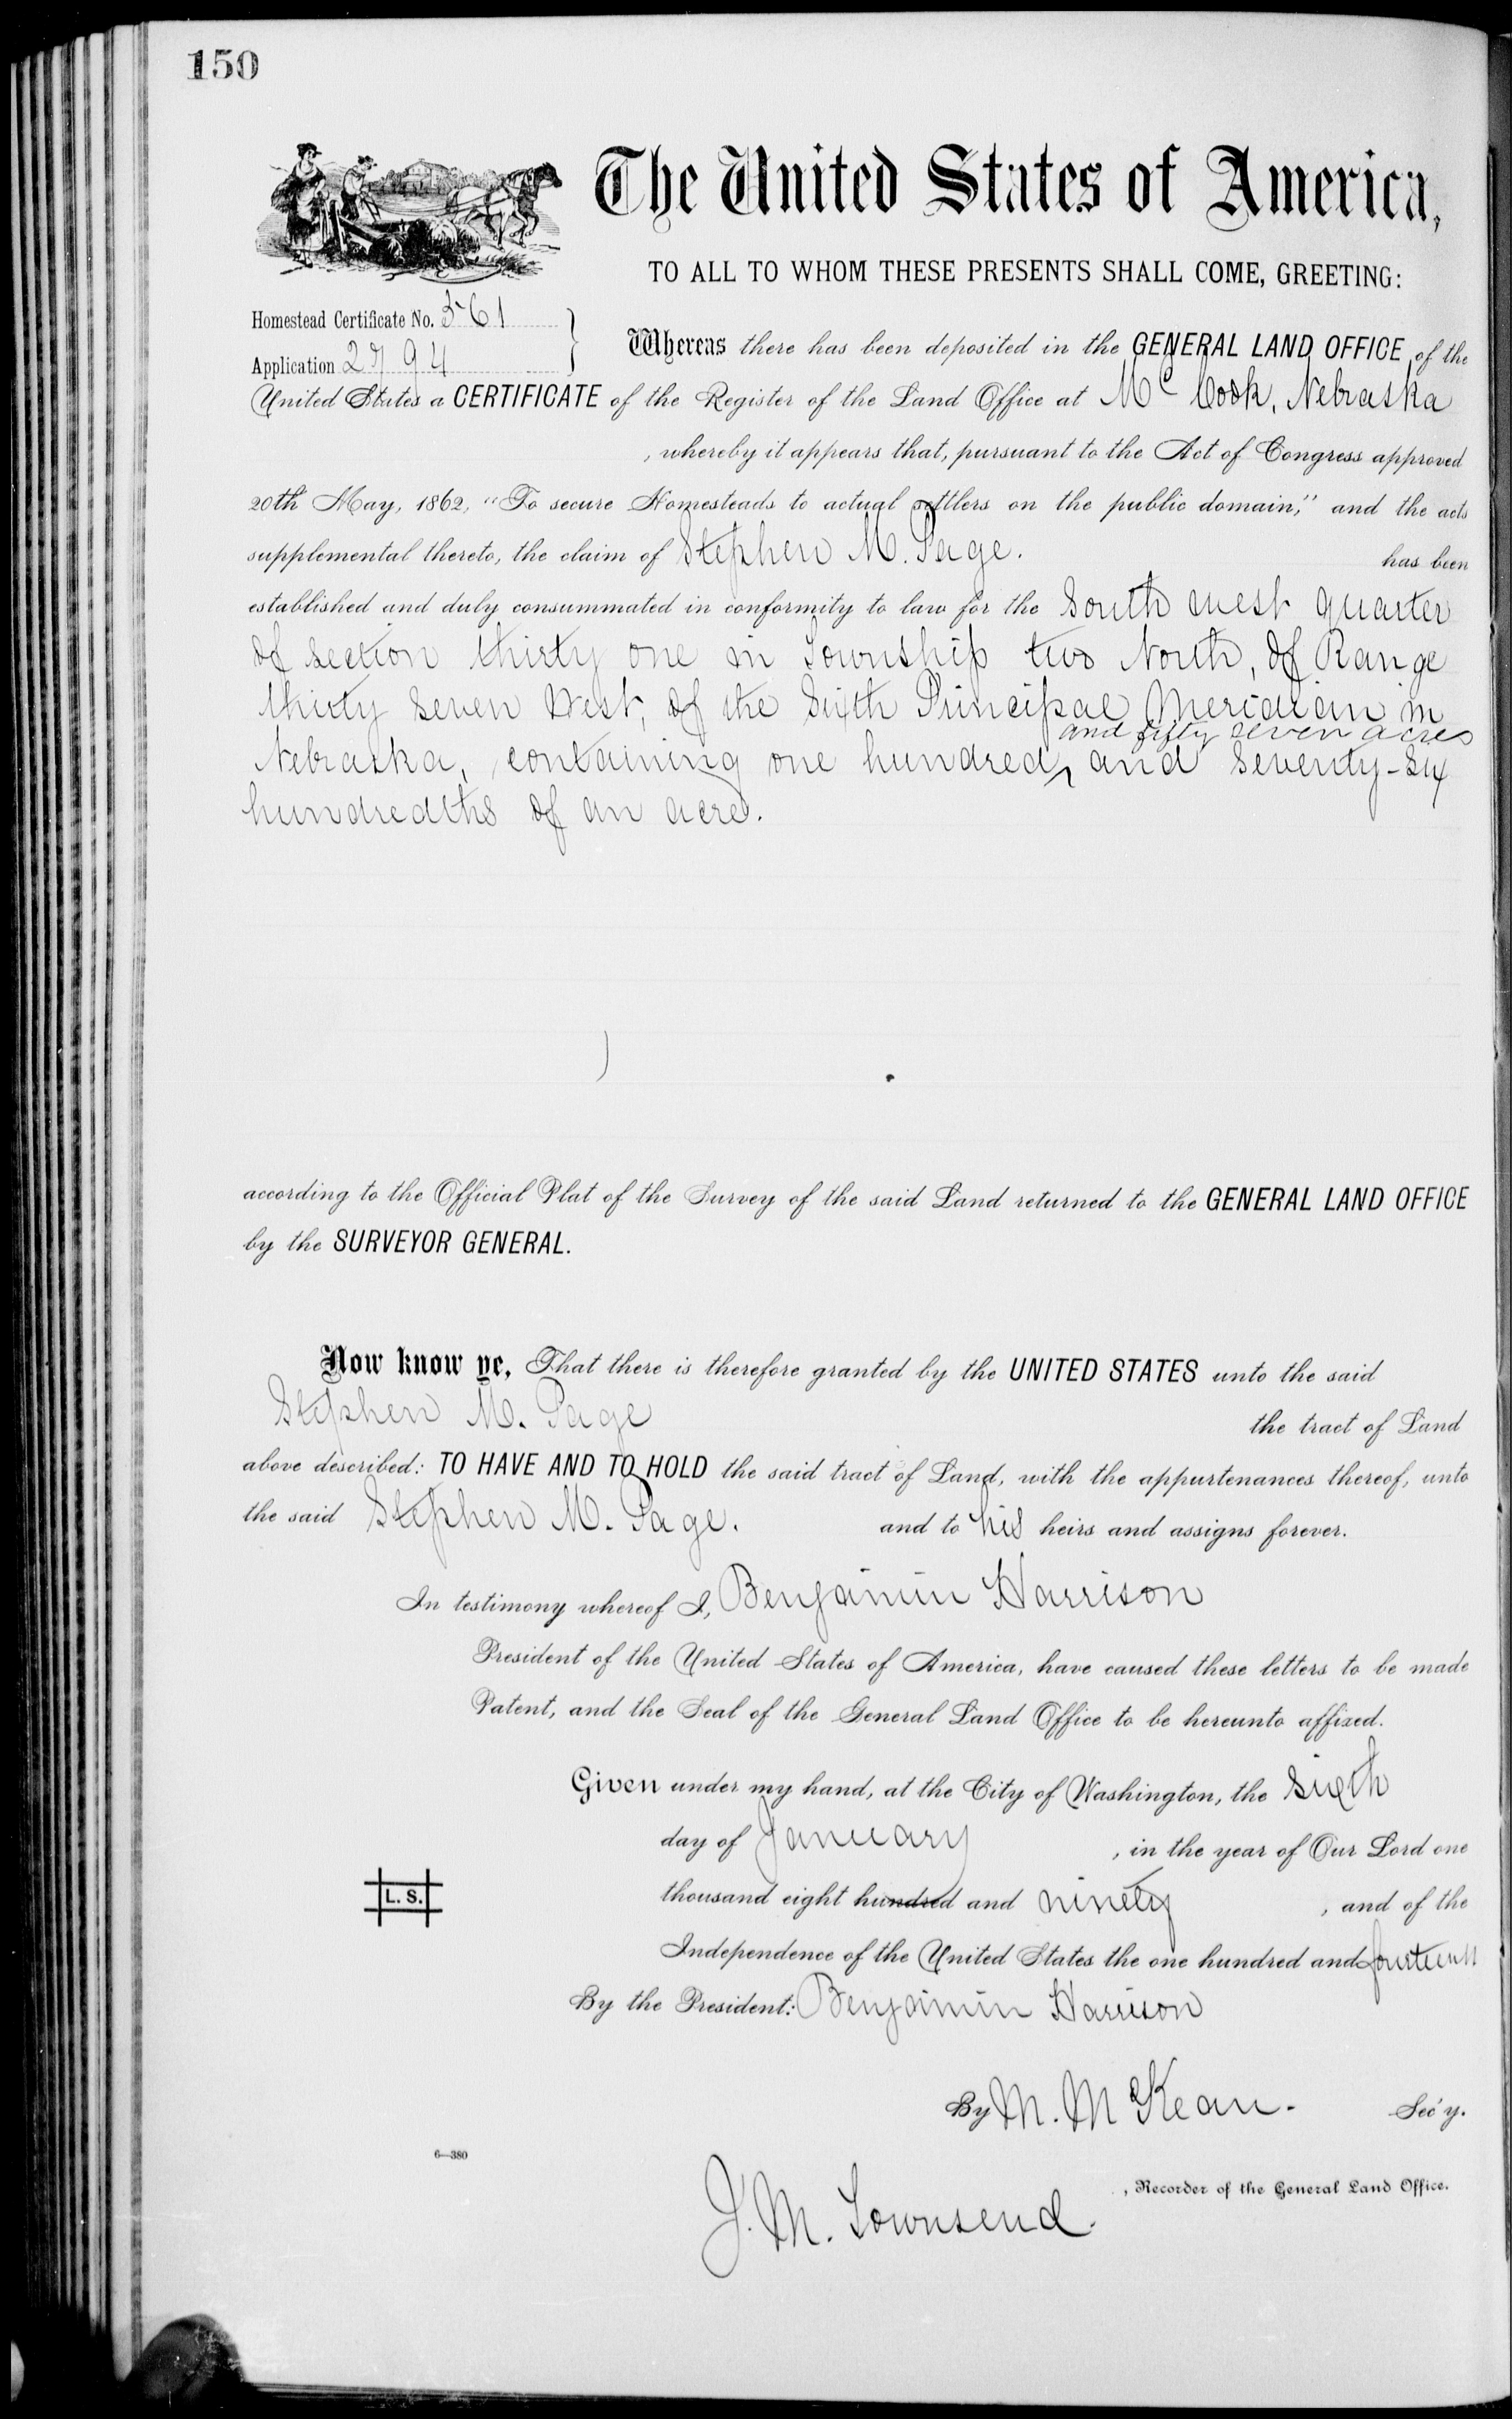 150
The United States of America,
TO ALL TO WHOM THESE PRESENTS SHALL COME, GREETING:
Homestead Certificate No. 561
Application 2794
Whereas there has been deposited in the GENERAL LAND OFFICE of the
United States a CERTIFICATE of the Register of the Land Office at McCook, Nebraska
, whereby it appears that, pursuant to the Act of Congress approved
20th May, 1862, "To secure Homesteads to actual settlers on the public domain," and the acts
supplemental thereto, the claim of Stephen M. Page. has been
established and duly consummated in conformity to law for the South west quarter
of section thirty one in Township two North, of Range
thirty seven West, of the Sixth Principal Meridian in
and fifty seven acres
Nebraska, containing one hundred ^ and seventy-six
hundredths of an acre.
according to the Official Plat of the Survey of the said Land returned to the GENERAL LAND OFFICE
by the SURVEYOR GENERAL.
Now know ye, That there is therefore granted by the UNITED STATES unto the said
Stephen M. Page the tract of Land
above described: TO HAVE AND TO HOLD the said tract of Land, with the appurtenances thereof, unto
the said Stephen M. Page. and to his heirs and assigns forever.
In testimony whereof I, Benjamin Harrison
President of the United States of America, have caused these letters to be made
Patent, and the Seal of the General Land Office to be hereunto affixed.
Given under my hand, at the City of Washington, the sixth
day of January , in the year of Our Lord one
thousand eight hundred and ninety , and of the
L. S.
Independence of the United States the one hundred and fourteenth
By the President: Benjamin Harrison
By M. McKean. Sec'y.
6—380
J. M. Townsend. , Recorder of the General Land Office.